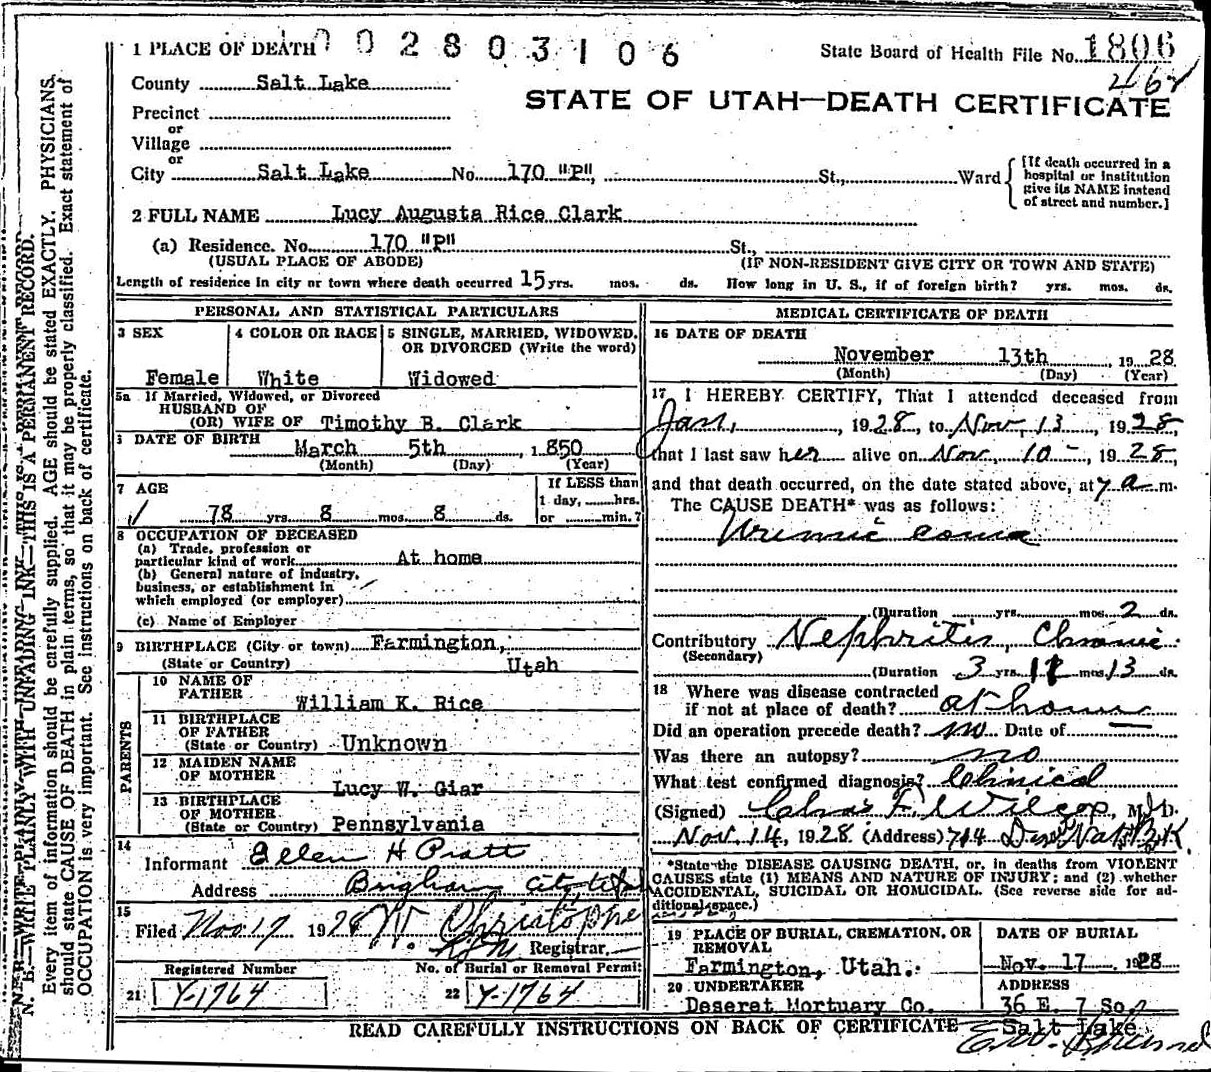 1 PLACE OF DEATH 0 0 2 8 0 3 1 0 6 State Board of Health File No. 1806
County Salt Lake 
STATE OF UTAH—DEATH CERTIFICATE
Precinct
or
Village
or
City Salt Lake No. 170 "P", St., Ward
[If death occurred in a
hospital or institution
give its NAME instead
of street and number.]
2 FULL NAME Lucy Augusta Rice Clark
(a) Residence. No. 170 "P" St.,
(USUAL PLACE OF ABODE) (IF NON-RESIDENT GIVE CITY OR TOWN AND STATE)
Length of residence in city or town where death occurred 15 yrs. mos. ds. How long in U. S., if of foreign birth? yrs. mos. ds.
PERSONAL AND STATISTICAL PARTICULARS
3 SEX
Female
4 COLOR OR RACE
White
5 SINGLE, MARRIED, WIDOWED,
OR DIVORCED (Write the word)
Widowed
5a If Married, Widowed, or Divorced
HUSBAND OF
(OR) WIFE OF Timothy B. Clark
DATE OF BIRTH
March 5th, 1850
(Month) (Day) (Year)
7 AGE
78 yrs. 8 mos. 8 ds.
If LESS than
1 day, hrs.
or min.?
8 OCCUPATION OF DECEASED
(a) Trade, profession or
particular kind of work At home
(b) General nature of industry,
business, or establishment in
which employed (or employer)
(c) Name of Employer
9 BIRTHPLACE (City or town) Farmington,
(State or Country) Utah
PARENTS
10 NAME OF
FATHER William K. Rice
11 BIRTHPLACE
OF FATHER
(State or Country) Unknown
12 MAIDEN NAME
OF MOTHER
Lucy W. Giar
13 BIRTHPLACE
OF MOTHER
(State or Country) Pennsylvania
14
Informant Ellen H Pratt
Address Brigham City Utah
15
Filed Nov 17 1928 W. Christophe
Registrar.
Registered Number No. of Burial or Removal Permit
21 Y-1764 22 Y-1764
MEDICAL CERTIFICATE OF DEATH
16 DATE OF DEATH
November 13th 1928
(Month) (Day) (Year)
17 I HEREBY CERTIFY, That I attended deceased from
Jan, 1928, to Nov, 13, 1928,
that I last saw her alive on Nov, 10-, 1928,
and that death occurred, on the date stated above, at 7 a m.
The CAUSE DEATH* was as follows:
Uremic coma
(Duration yrs. mos. 2 ds.
Contributory Nephritis, Chronic.
(Secondary)
(Duration 3 yrs. mos. 13 ds.
18 Where was disease contracted
if not at place of death? at home
Did an operation precede death? no Date of —
Was there an autopsy? no
What test confirmed diagnosis? Clinical
(Signed) Chas F Wilcox, M. D.
Nov. 14, 1928 (Address) 714
*State the DISEASE CAUSING DEATH, or, in deaths from VIOLENT
CAUSES state (1) MEANS AND NATURE OF INJURY; and (2) whether
ACCIDENTAL, SUICIDAL OR HOMICIDAL. (See reverse side for ad-
ditional space.)
19 PLACE OF BURIAL, CREMATION, OR
REMOVAL
Farmington, Utah.
DATE OF BURIAL
Nov. 17 1928
20 UNDERTAKER
Deseret Mortuary Co.
ADDRESS
36 E. 7 So.
Salt Lake
READ CAREFULLY INSTRUCTIONS ON BACK OF CERTIFICATE
N. B.—WRITE PLAINLY WITH UNFADING INK—THIS IS A PERMANENT RECORD.
Every item of information should be carefully supplied. AGE should be stated EXACTLY. PHYSICIANS
should state CAUSE OF DEATH in plain terms, so that it may be properly classified. Exact statement of
OCCUPATION is very important. See instructions on back of certificate.